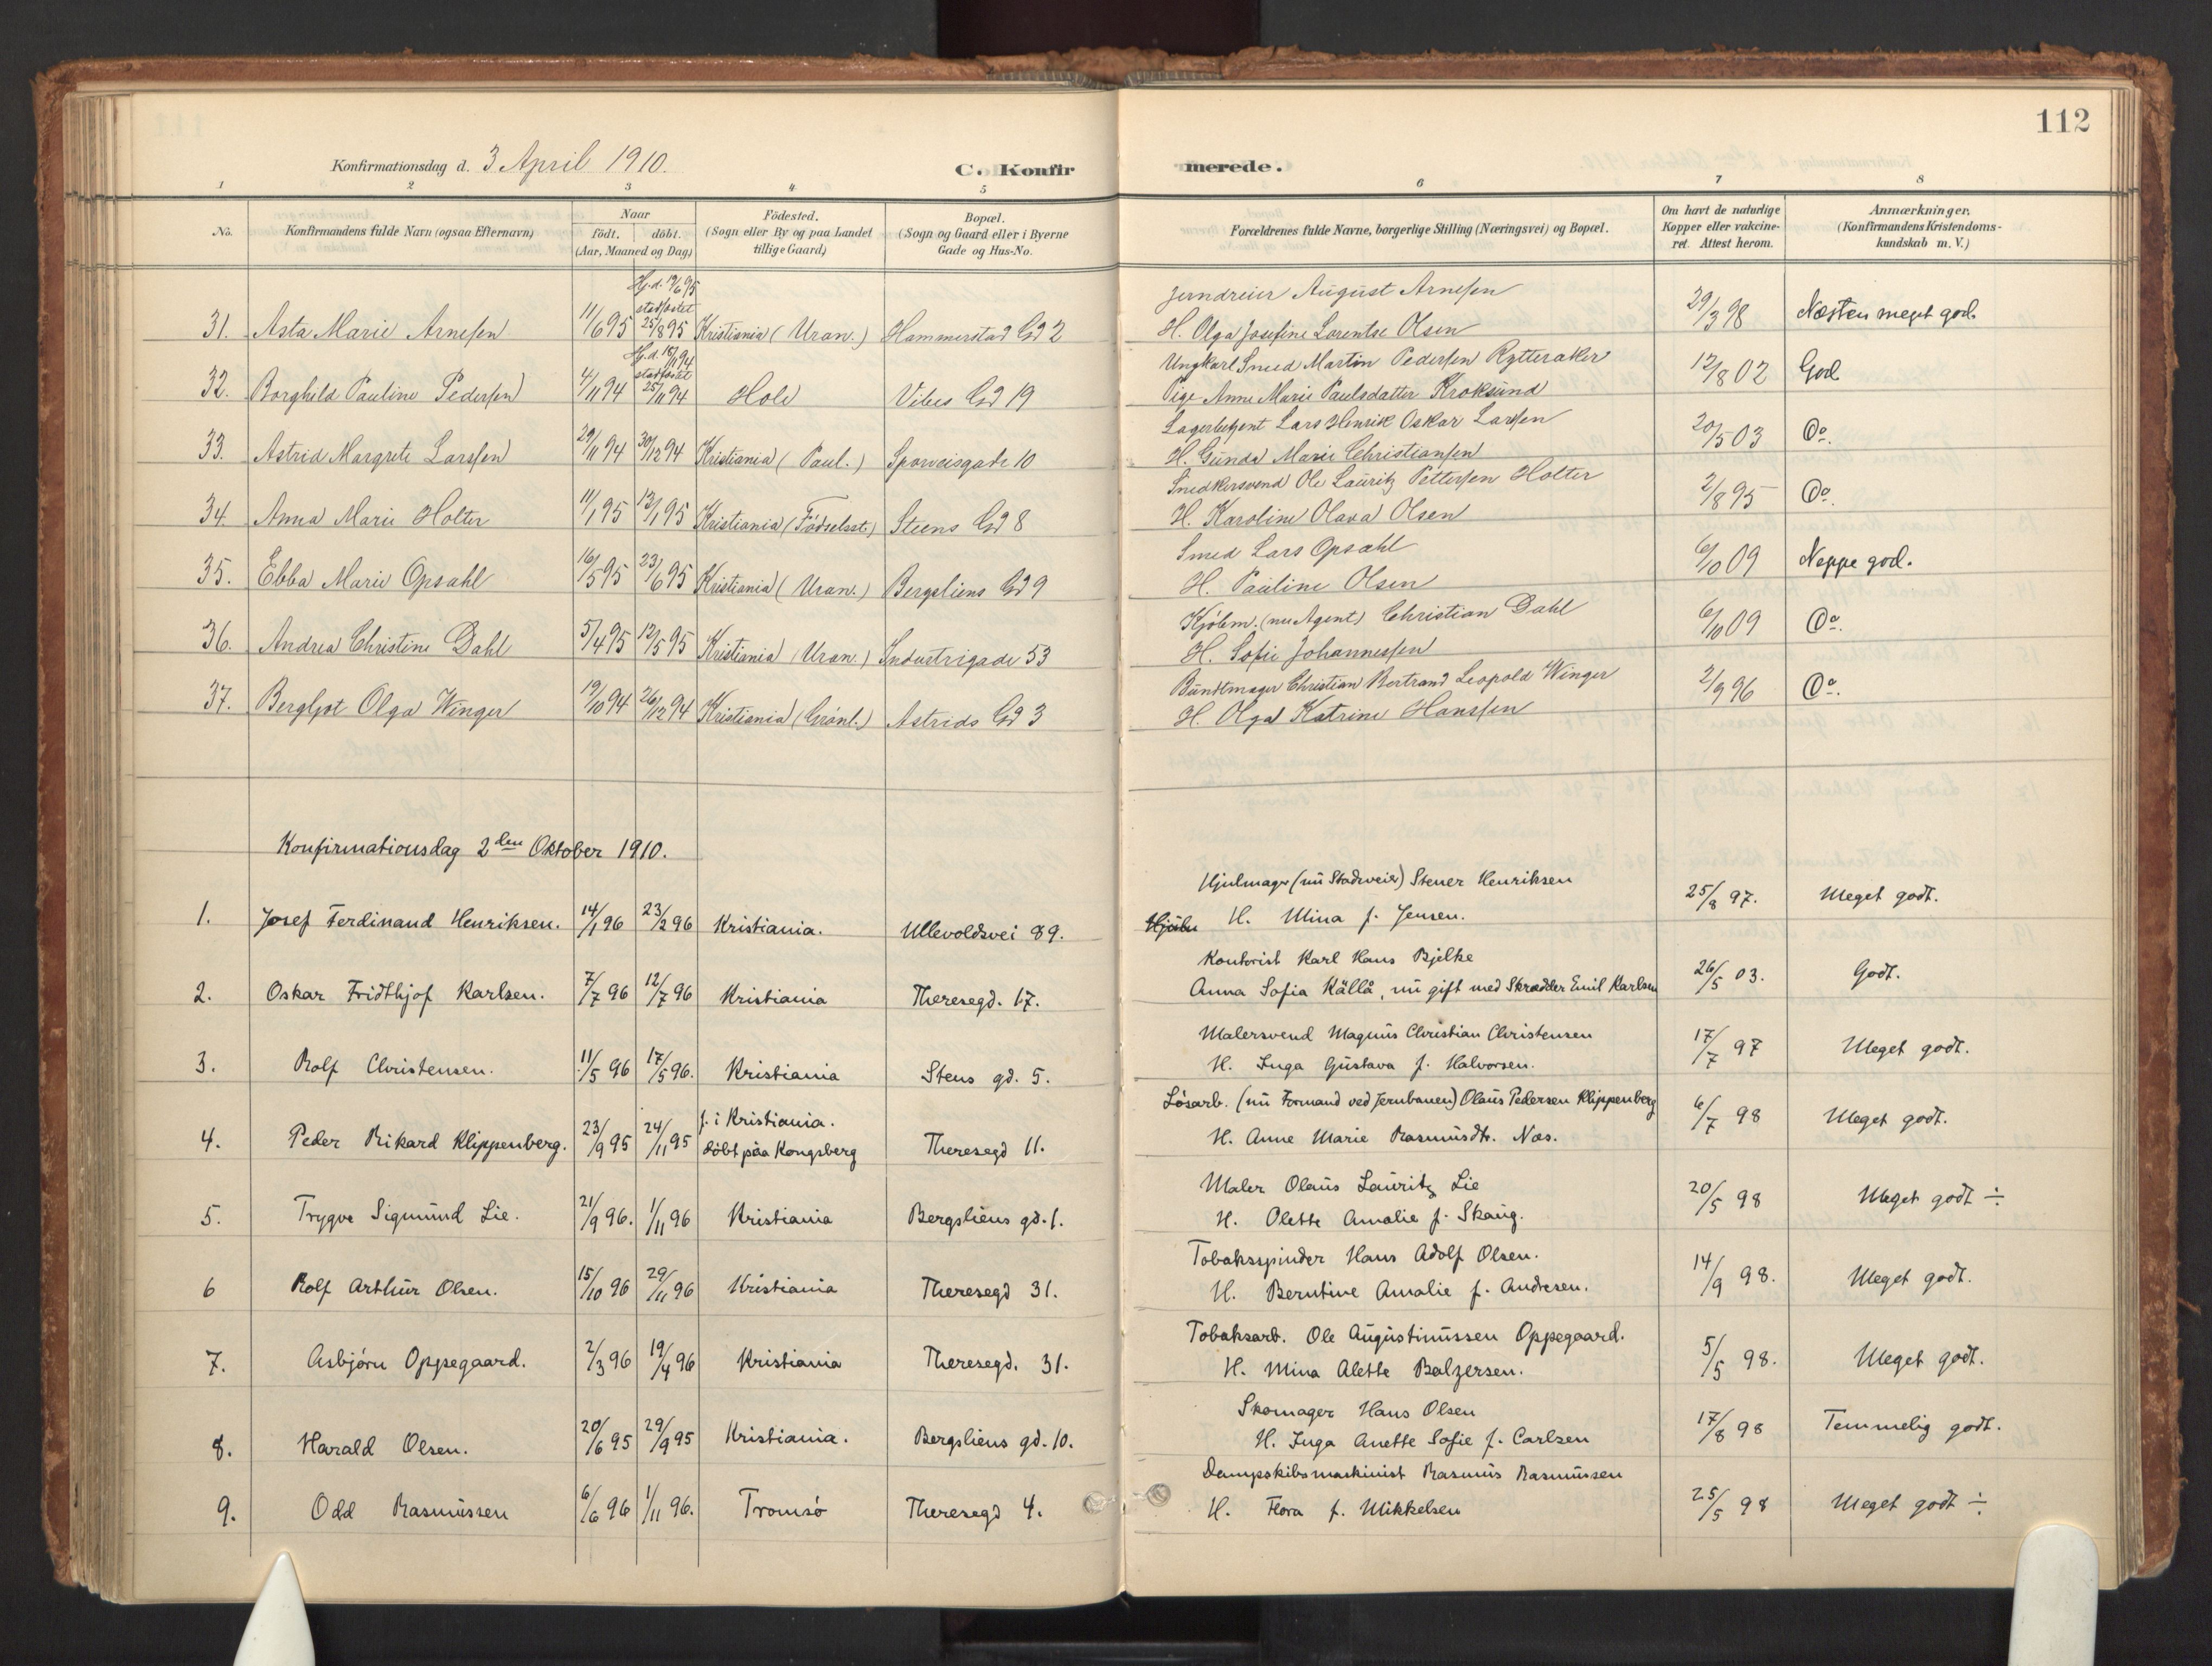 112
Konfirmationsdag d. 3 April 1910.
C. Konfirmerede.
1 2 3 4 5 6 7 8
No.
Konfirmandens fulde Navn (ogsaa Efternavn)
Naar
födt. döbt.
(Aar, Maaned og Dag)
Födested.
(Sogn eller By og paa Landet
tillige Gaard)
Bopæl.
(Sogn og Gaard eller i Byerne
Gade og Hus-No.
Forældrenes fulde Navne, borgerlige Stilling (Næringsvei) og Bopæl.
Om havt de naturlige
Kopper eller vakcine-
ret. Attest herom.
Anmærkninger.
(Konfirmandens Kristendoms-
kundskab m. V.)
Hj.d. 19/6 95
stadfæstet
Jerndreier August Arnesen
31. Asta Marie Arnesen 11/6 95 25/8 95 Kristiania (Uran.) Hammerstad Gd 2 H. Olga Josefine Lorentse Olsen 29/3 98 Næsten meget god.
Hj.d. 18/11 94
stadfæstet
Ungkarl Smed Martin Pedersen Rytteraker
32. Borghild Pauline Pedersen 4/11 94 25/11 94 Hole Vibes Gd 19 Pige Anne Marie Paulsdatter Kroksund 12/8 02 God
Lagerbetjent Lars Henrik Oskar Larssen
33. Astrid Margrete Larssen 29/11 94 30/12 94 Kristiania (Paul.) Sporveisgade 10 H. Gunda Marie Christiansen 20/5 03 Do.
Snedkersvend Ole Lauritz Pettersen Holter
34. Anna Marie Holter 11/1 95 13/1 95 Kristiania (Födselsst.) Steens Gd 8 H. Karoline Olava Olsen 2/8 95 Do.
Smed Lars Opsahl
35. Ebba Marie Opsahl 16/5 95 23/6 95 Kristiania (Uran.) Bergsliens Gd 9 H. Pauline Olsen 6/10 09 Neppe god.
Kjöbm. (nu Agent) Christian Dahl
36. Andrea Christine Dahl 5/4 95 12/5 95 Kristiania (Uran.) Industrigade 53 H. Sofie Johannessen 6/10 09 Do.
Buntmager Christian Bertrand Leopold Winger
37. Bergljot Olga Winger 19/10 94 26/12 94 Kristiania (Grönl.) Astrids Gd 3 H. Olga Katrine Hanssen 2/9 96 Do.
Konfirmationsdag 2den Oktober 1910.
Hjulmager (nu Stadsveier) Stener Henriksen
1. Josef Ferdinand Henriksen. 14/1 96 23/2 96 Kristiania. Ullevoldsvei 89. H. Mina f. Jensen. 25/8 97. Meget godt.
Kontorist Karl Hans Bjelke
2. Oskar Fridthjof Karlsen. 7/7 96 12/7 96 Kristiania Theresegd. 17. Anna Sofia Källå, nu gift med Skrædder Emil Karlsen 26/5 03. Godt.
Malersvend Magnus Christian Christensen
3. Rolf Christensen. 11/5 96 17/5 96. Kristiania Stens gd. 5. H. Inga Gustava f. Halvorsen. 17/7 97 Meget godt.
f. i Kristiania. Lösarb. (nu Formand ved Jernbanen) Olaus Pedersen Klippenberg
4. Peder Rikard Klippenberg. 23/9 95 24/11 95 döbt paa Kongsberg Theresegd 11. H. Anne Marie Rasmusdtr. Næs. 6/7 98 Meget godt.
Maler Olaus Lauritz Lie
5. Trygve Sigmund Lie. 21/9 96. 1/11 96 Kristiania Bergsliens gd. 1. H. Olette Amalie f. Skaug. 20/5 98 Meget godt ÷
Tobaksspinder Hans Adolf Olsen.
6 Rolf Arthur Olsen. 15/10 96 29/11 96 Kristiania Theresegd 31. H. Berntine Amalie f. Andresen. 14/9 98. Meget godt.
Tobaksarb. Ole Augustinussen Oppegaard.
7. Asbjörn Oppegaard. 2/3 96 19/4 96 Kristiania Theresegd. 31. H. Mina Alette Balzersen. 5/5 98. Meget godt.
Skomager Hans Olsen
8. Harald Olsen. 20/6 95 29/9 95 Kristiania. Bergsliens gd. 10. H. Inga Anette Sofie f. Carlsen 17/8 98 Temmelig godt.
Dampskibsmaskinist Rasmus Rasmussen
9. Odd Rasmussen 6/6 96 1/11 96. Tromsö Theresegd 4. H. Flora f. Mikkelsen 25/5 98 Meget godt ÷